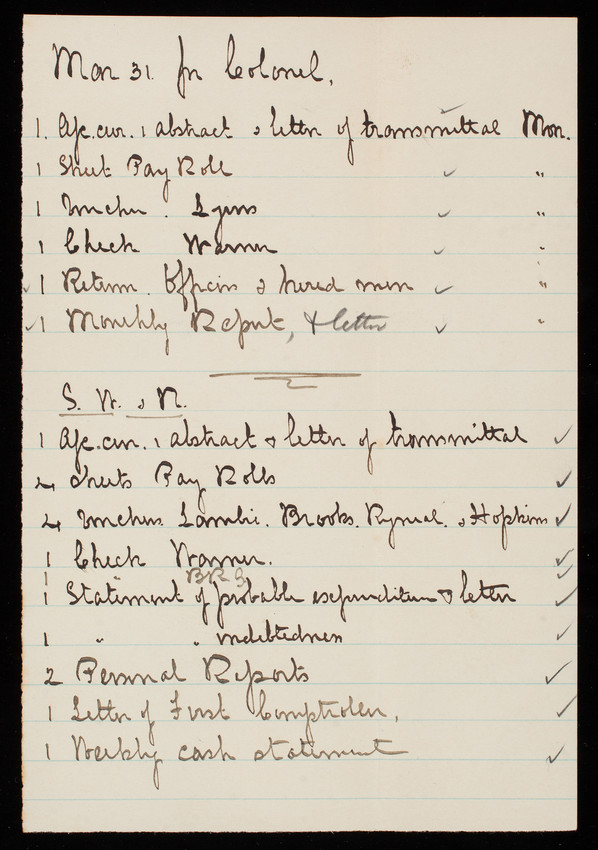 Mar 31. for Colonel,
1. A/c. cur. 1 abstract & letter of transmittal ✓ Mon.
1 Sheet Pay Roll ✓ "
1 Voucher. Lyons ✓ "
1 Check Warner ✓ "
✓ 1 Return. Officers & hired men ✓ "
✓ 1 Monthly Report, & letter ✓ "
S. W. & N.
1 A/c. cur. 1 abstract & letter of transmittal ✓
4 sheets Pay Rolls ✓
4 Vouchers. Lambie. Brooks. Ryneal. & Hopkins ✓
1 Check Warner. ✓
1 " ✓
1 Statement of probable expenditure & letter ✓
1 " " indebtedness ✓
2 Personal Reports ✓
1 Letter of First Comptroller, ✓
1 Weekly cash statement ✓